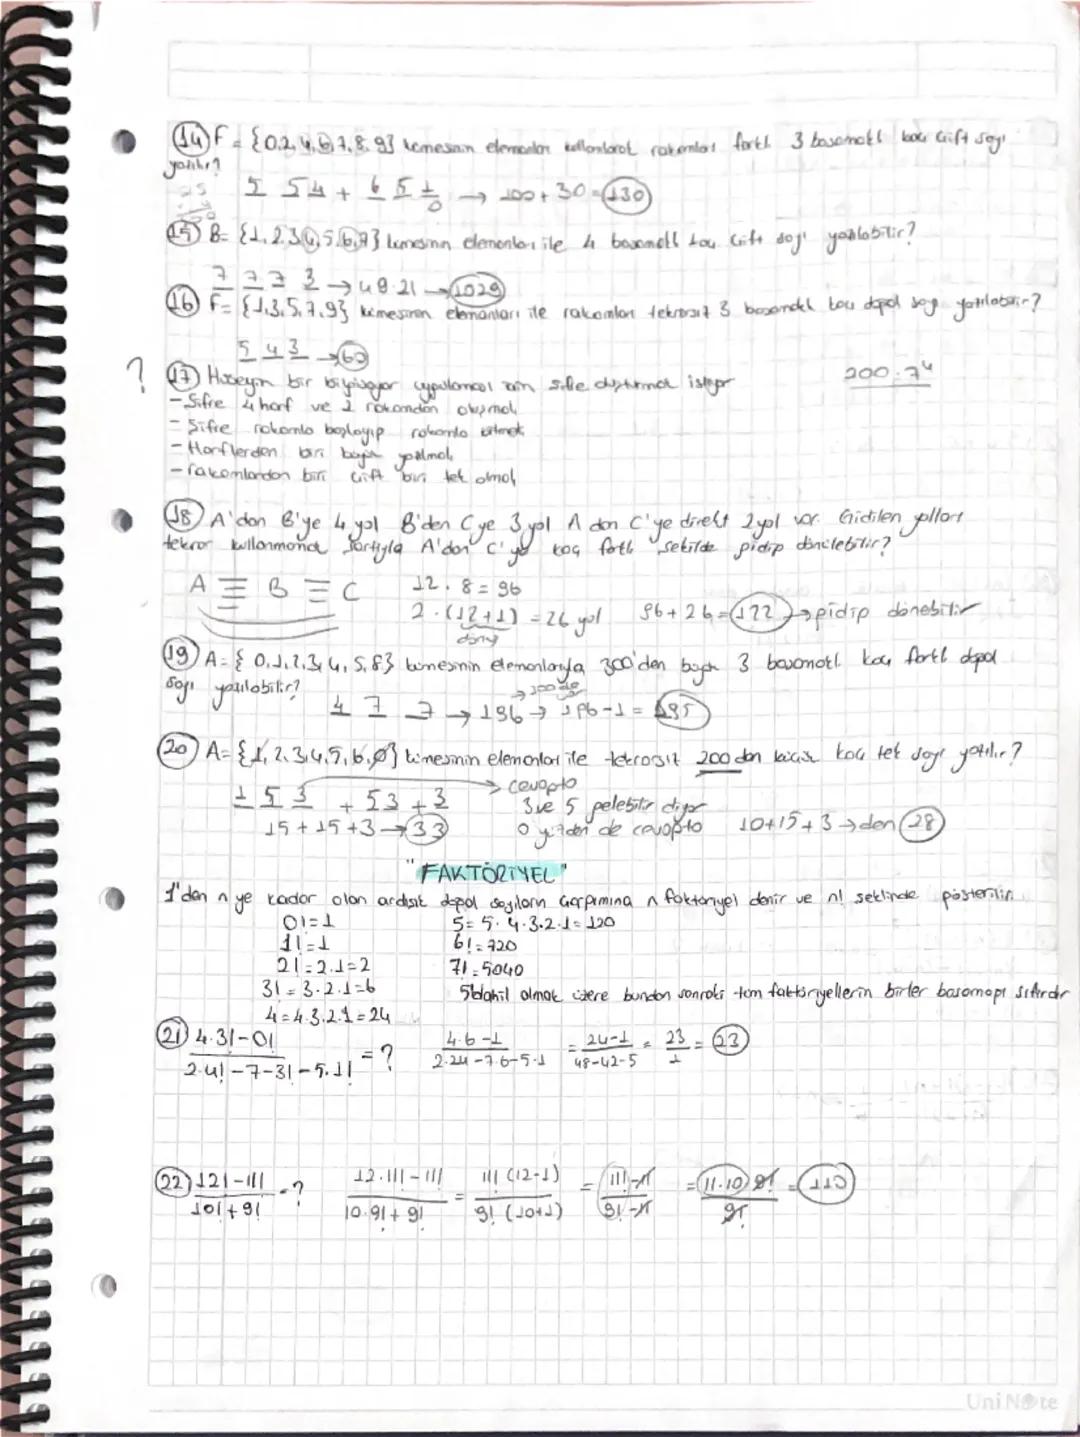 14) F = {0,2,4,6,7,8,9} kümesinin elemanları kullanılarak rakamları farklı 3 basamaklı kaç çift sayı
yazılır?
5 5 4 + 6 5 1 → 100 + 30 = 130
0
15) B = {1,2,3,4,5,6,7} kümesinin elemanları ile 4 basamaklı kaç çift sayı yazılabilir?
7 7 7 3 → 49.21 → 1029
16) F = {1,3,5,7,9} kümesinin elemanları ile rakamları tekrarsız 3 basamaklı kaç doğal sayı yazılabilir?
5 4 3 → 60
? 17) Hüseyin bir bilgisayar uygulaması için şifre oluşturmak istiyor 200.7⁴
- Şifre 4 harf ve 2 rakamdan oluşmalı
- Şifre rakamla başlayıp rakamla bitmek
- Harflerden biri büyük yazılmalı
- rakamlardan biri çift biri tek olmalı
18) A'dan B'ye 4 yol B'den C'ye 3 yol A dan C'ye direkt 2 yol var. Gidilen yolları
tekrar kullanmamak şartıyla A'dan C'ye kaç farklı şekilde gidip dönülebilir?
A B C 12.8 = 96
2.(12+1) = 26 yol 96 + 26 = 122 → gidip dönebilir
dönüş
19) A = {0,1,2,3,4,5,8} kümesinin elemanlarıyla 300'den büyük 3 basamaklı kaç farklı doğal
sayı yazılabilir?
→ 300 de var
4 7 7 → 196 → 196-1 = 195
20) A = {1,2,3,4,5,6,0} kümesinin elemanları ile tekrarsız 200 den küçük kaç tek sayı yazılır?
1 5 3 + 53 + 3 → cevapta
3 ve 5 gelebilir diyor
15 + 15 + 3 → 33 o yüzden de cevapta 10+15+3 → den 28
"FAKTÖRİYEL"
1'den n ye kadar olan ardışık doğal sayıların çarpımına n faktöriyel denir ve n! şeklinde gösterilir.
0! = 1 5 = 5.4.3.2.1 = 120
1! = 1 6! = 720
2! = 2.1 = 2 7! = 5040
3! = 3.2.1 = 6 5! dahil olmak üzere bundan sonraki tüm faktöriyellerin birler basamağı sıfırdır
4 = 4.3.2.1 = 24
21) 4.3!-0! / 2.4!-7-3!-5.1! = ? 4.6-1 / 2.24-7.6-5.1 = 24-1 / 48-42-5 = 23 / 1 = 23
22) 12!-11! / 10!+9! = ? 12.11!-11! / 10.9!+9! = 11! (12-1) / 9! (10+1) = 11!.11 / 9!.11 = 11.10 9! / 9! = 110
UniNote